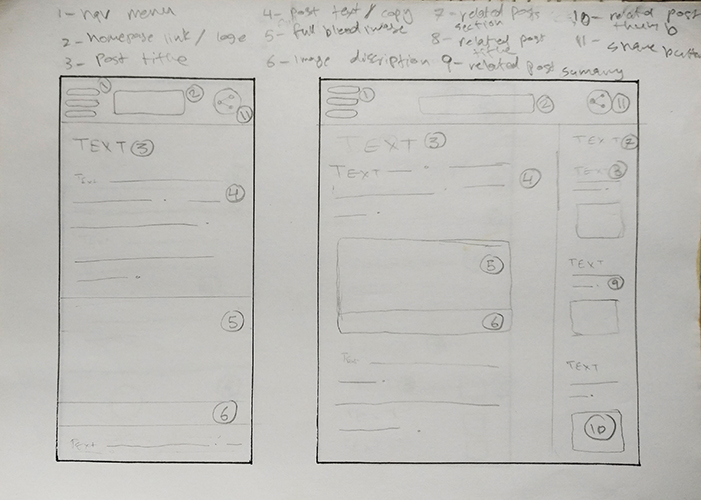 1- nav menu
2- homepage link / logo
3- Post title
4- post text / copy
5- full bleed image
6- image discription
7- related posts section
8- related post title
9- related post sumarry
10- related post thumb
11- share button
1
2
11
TEXT 3
Text
4
5
6
Text
1
2
11
TEXT 3
TEXT
4
5
6
Text
TEXT 7
TEXT 8
TEXT
9
TEXT
10